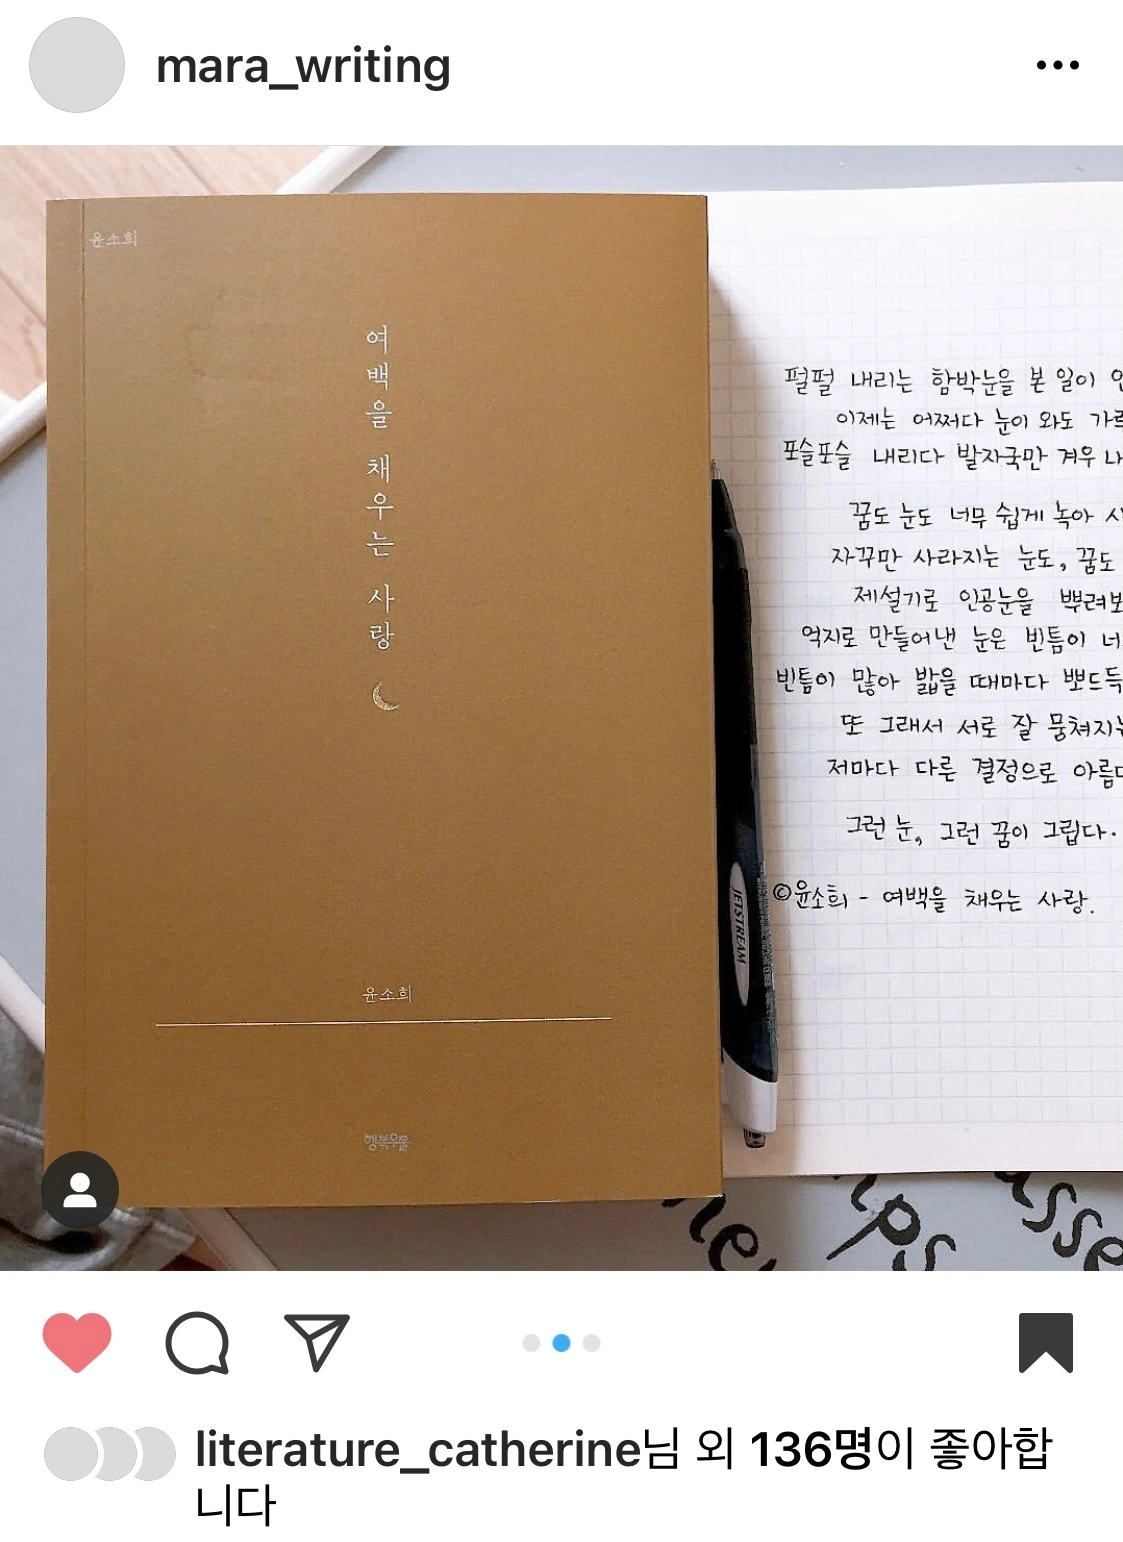 mara_writing
윤소희
여백을 채우는 사랑
윤소희
행복우물
펄펄 내리는 함박눈을 본 일이
이제는 어쩌다 눈이 와도
포슬포슬 내리다 발자국만 겨우
꿈도 눈도 너무 쉽게 녹아
자꾸만 사라지는 눈도, 꿈도
제설기로 인공눈을 뿌려보
억지로 만들어낸 눈은 빈틈이
빈틈이 많아 밟을 때마다 뽀드득
또 그래서 서로 잘 뭉쳐지는
저마다 다른 결정으로
그런 눈, 그런 꿈이 그립다.
©윤소희 - 여백을 채우는 사랑.
JETSTREAM
literature_catherine님 외 136명이 좋아합
니다